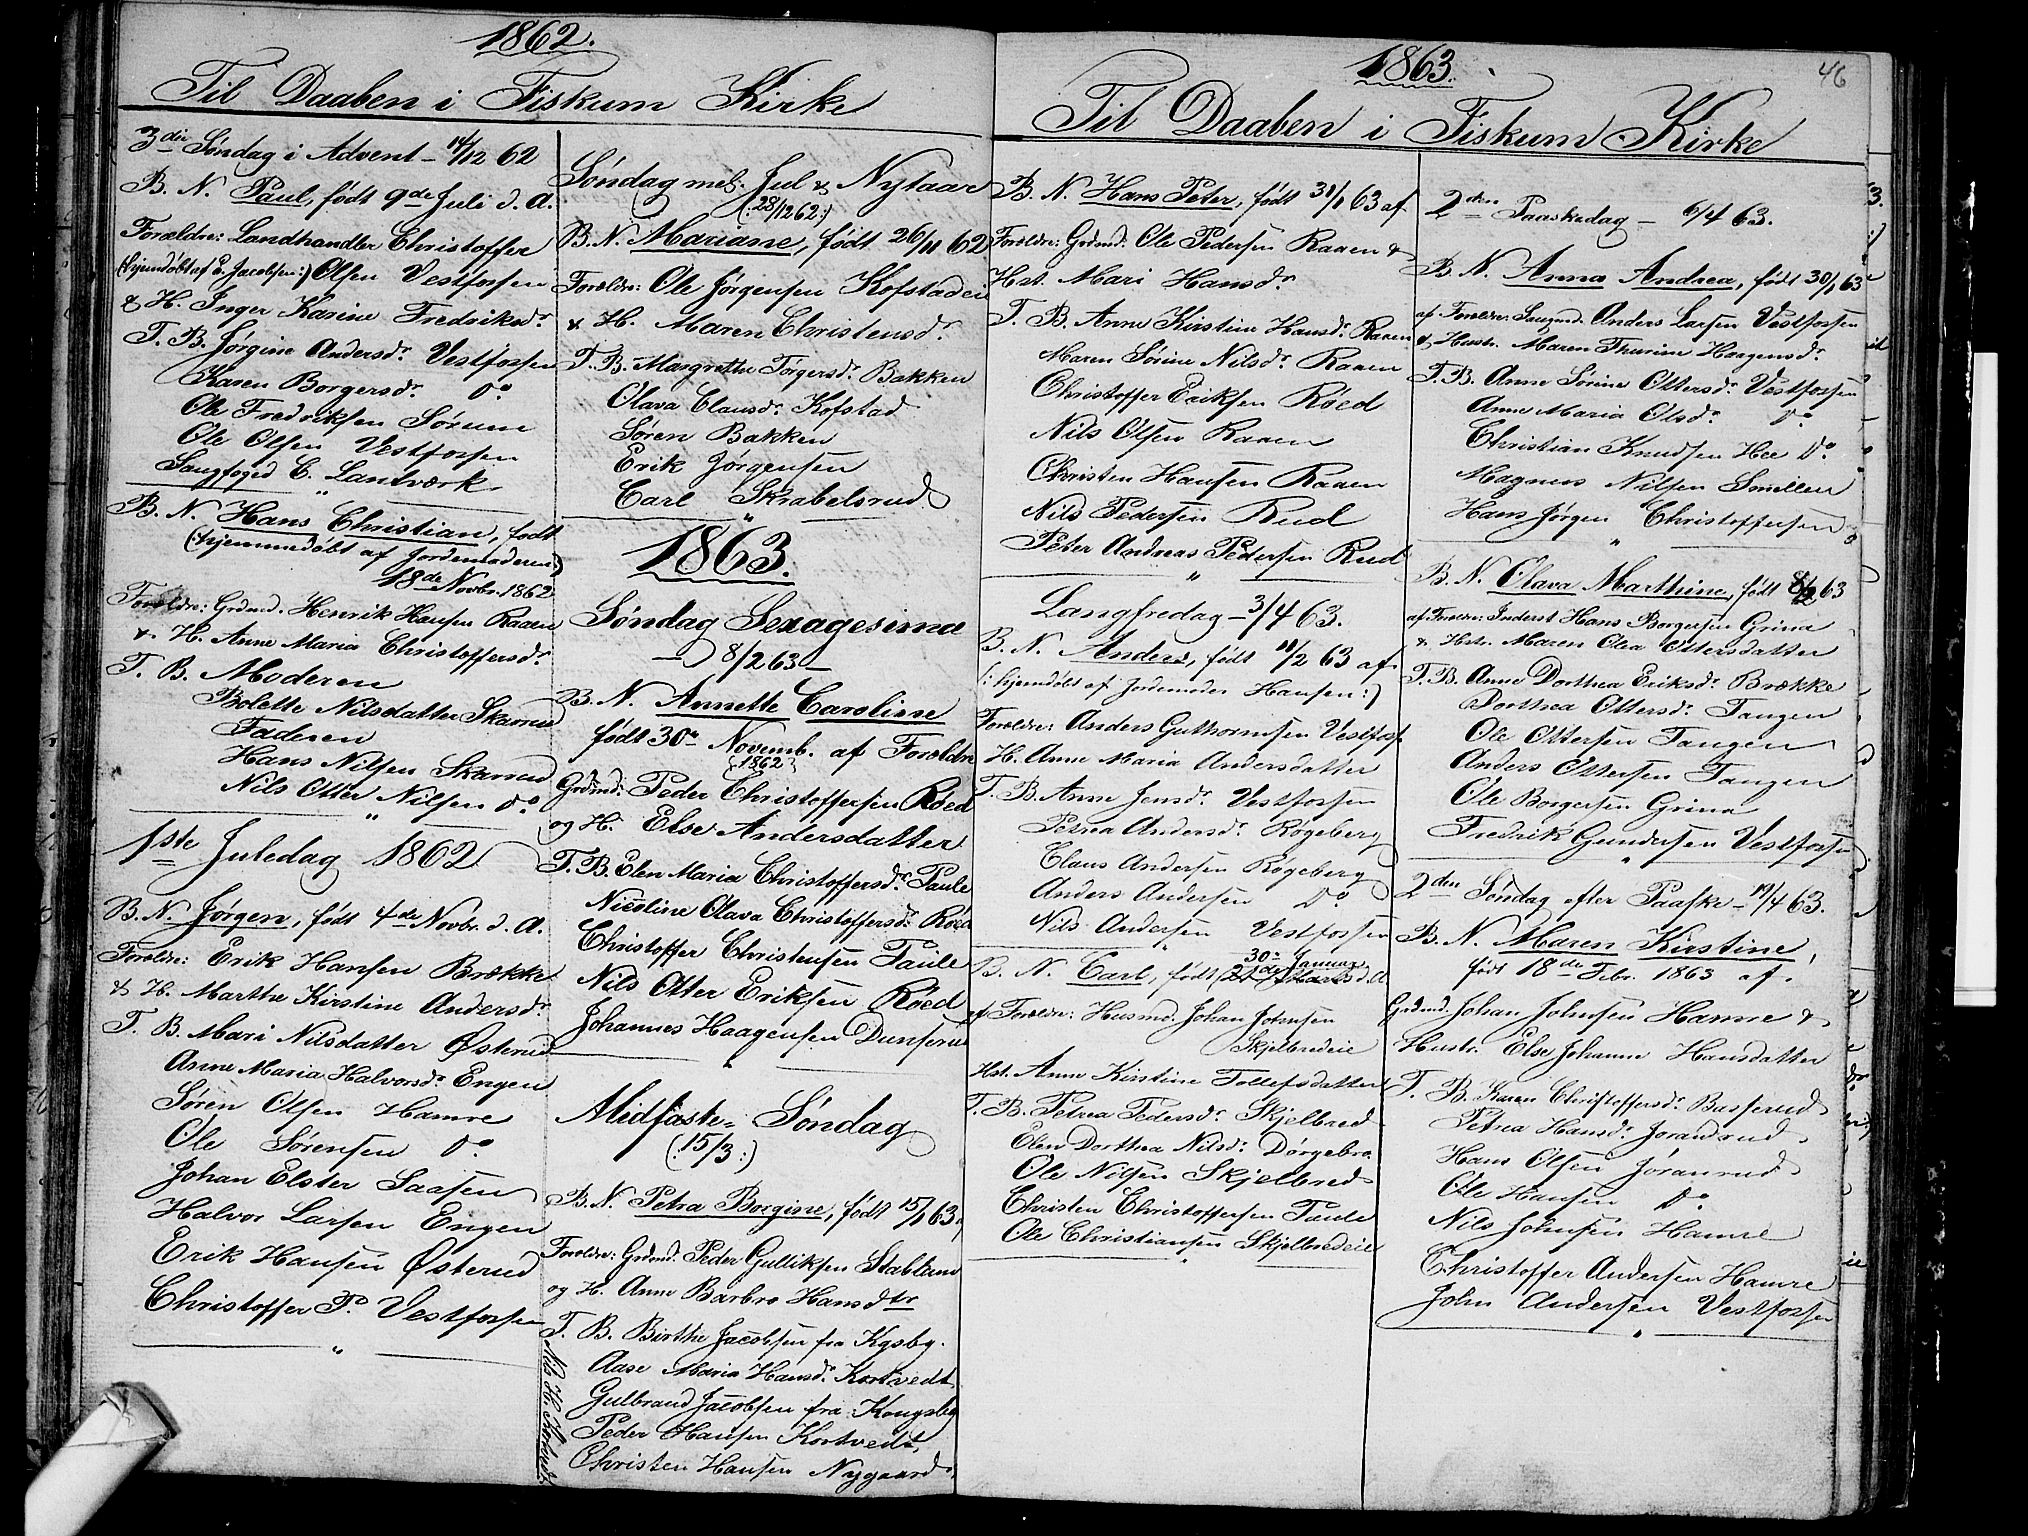 1862.
Til Daaben i Fiskum Kirke
3die Søndag i Advent - 14/12 62
B. N. Paul, født 9de Juli d. A.
Forældre: Landhandler Christoffer
(hjemdøbt af E. Jacobsen:) Olsen Vestfossen
& H. Inger Karine Fredriksdr.
T. B. Jørgine Andersdr. Vestfossen
Karen Borgersdr. Do.
Ole Fredriksen Sørum
Ole Olsen Vestfossen
Saugfoged C. Lantværk
"
B. N. Hans Christian, født
(hjemmedøbt af Jordemoderen:)
18de Novbr. 1862
Forældre: Grdmd. Henrik Hansen Raaen
& H. Anne Maria Christoffersdr.
T. B. Moderen
Bolette Nilsdatter Skarrud
Faderen
Hans Nilsen Skarrud
Nils Otter Nilsen Do
"
1ste Juledag 1862
B. N. Jørgen, født 4de Novbr. d. A.
Forældre: Erik Hansen Brække
& H. Marthe Kirstine Andersdr.
T. B. Mari Nilsdatter Østerud
Anne Maria Halvorsdr. Engen
Søren Olsen Hamre
Ole Sørensen Do
Johan Elster Saasen
Halvor Larsen Engen
Erik Hansen Østerud
Christoffer P. Vestfossen
"
Søndag mel. Jul & Nytaar
(:28/12 62:)
B. N. Mariane, født 26/11 62
Forældre: Ole Jørgensen Kofstadeie
& H. Maren Christensdr.
T. B. Margrethe Torgersdr. Bakken
Olava Clausdr. Kofstad
Søren Bakken
Erik Jørgensen
Carl Skrabelsrud
"
1863.
Søndag Sexagesima
- 8/2 63 -
B. N. Annette Caroline
født 30te Novemb. af Forældre
(1862)
Grdmd: Peder Christoffersen Røed
og H. Else Andersdatter
T. B. Elen Maria Christoffersdr. Paule
Nicoline Olava Christoffersdr. Røed
Christoffer Christensen Paule
Nils Otter Eriksen Røed
Johannes Haagensen Dunserud
"
Midfaste- Søndag
(:15/3:)
B. N. Petra Borgine, født 15/1 63,
Forældre: Grdmd. Peder Gulliksen Stablum
og H. Anne Barbro Hansdtr
T. B. Birthe Jacobsen fra Kgsbg.
Aase Maria Hansdr. Kortvedt
Gulbrand Jacobsen fra Kongsbg
Peder Hansen Kortvedt,
Christen Hansen Nygaard,
Nils H. Kortvedt
1863.
46
Til Daaben i Fiskum Kirke
B. N. Hans Peter, født 31/1 63 af
Forældre: Grdmd. Ole Pedersen Raaen &
Hst. Mari Hansdr.
T. B. Anne Kirstine Hansdr. Raaen
Maren Sørine Nilsdr. Raaen
Christoffer Eriksen Røed
Nils Olsen Raaen
Christen Hansen Raaen
Nils Pedersen Rud
Peter Andreas Pedersen Rud
"
Langfredag - 3/4 63.
B. N. Anders, født 11/2 63 af
(:hjemdøbt af Jordemoder Hansen:)
Forældre: Anders Guthormsen Vestfos.
H. Anne Maria Andersdatter
T. B. Anne Jensdr. Vestfossen
Petrea Andersdr. Røgeberg
Claus Andersen Røgeberg
Anders Andersen Do
Nils Andersen Vestfossen
"
30te Januar
B. N. Carl, født 21de Marts d. A
af Forældre: Husmd. Johan Johnsen
Skjelbredeie
Hst. Anne Kirstine Tollefsdatter
T. B. Petrea Pedersdr. Skjelbred
Elen Dorthea Nilsdr. Dørgebro
Ole Nilsen Skjelbred
Christen Christoffersen Paule
Ole Christiansen Skjelbredeie
"
2den Paaskedag - 6/4 63.
B. N. Anna Andrea, født 30/1 63
af Forældre: Saugmd. Anders Larsen Vestfossen
& Hustr. Maren Thurine Haagensdr.
T. B. Anne Sørine Ottersdr. Vestfossen
Anne Maria Olsdr. Do.
Christian Knudsen Hee Do.
Magnus Nilsen Smellen
Hans Jørgen Christoffersen
"
B. N. Olava Marthine, født 8/2 63
af Forældre: Inderst Hans Borgersen Grina
& Hstr. Maren Olea Ottersdatter
T. B. Anne Dorthea Eriksdr. Brække
Dorthea Ottersdr. Tangen
Ole Ottersen Tangen
Anders Ottersen Tangen
Ole Borgersen Grina
Fredrik Gundersen Vestfossen
"
2den Søndag efter Paaske - 19/4 63.
B. N. Maren Kirstine,
født 18de Febr. 1863 af
Grdmd. Johan Johnsen Hamre &
Hustr. Else Johanne Hansdatter
T. B. Karen Christoffersdr. Basserud
Petrea Hansdr. Joranrud
Hans Olsen Jøranrud
Ole Hansen Do
Nils Johnsen Hamre
Christoffer Andersen Hamre
John Andersen Vestfossen
"